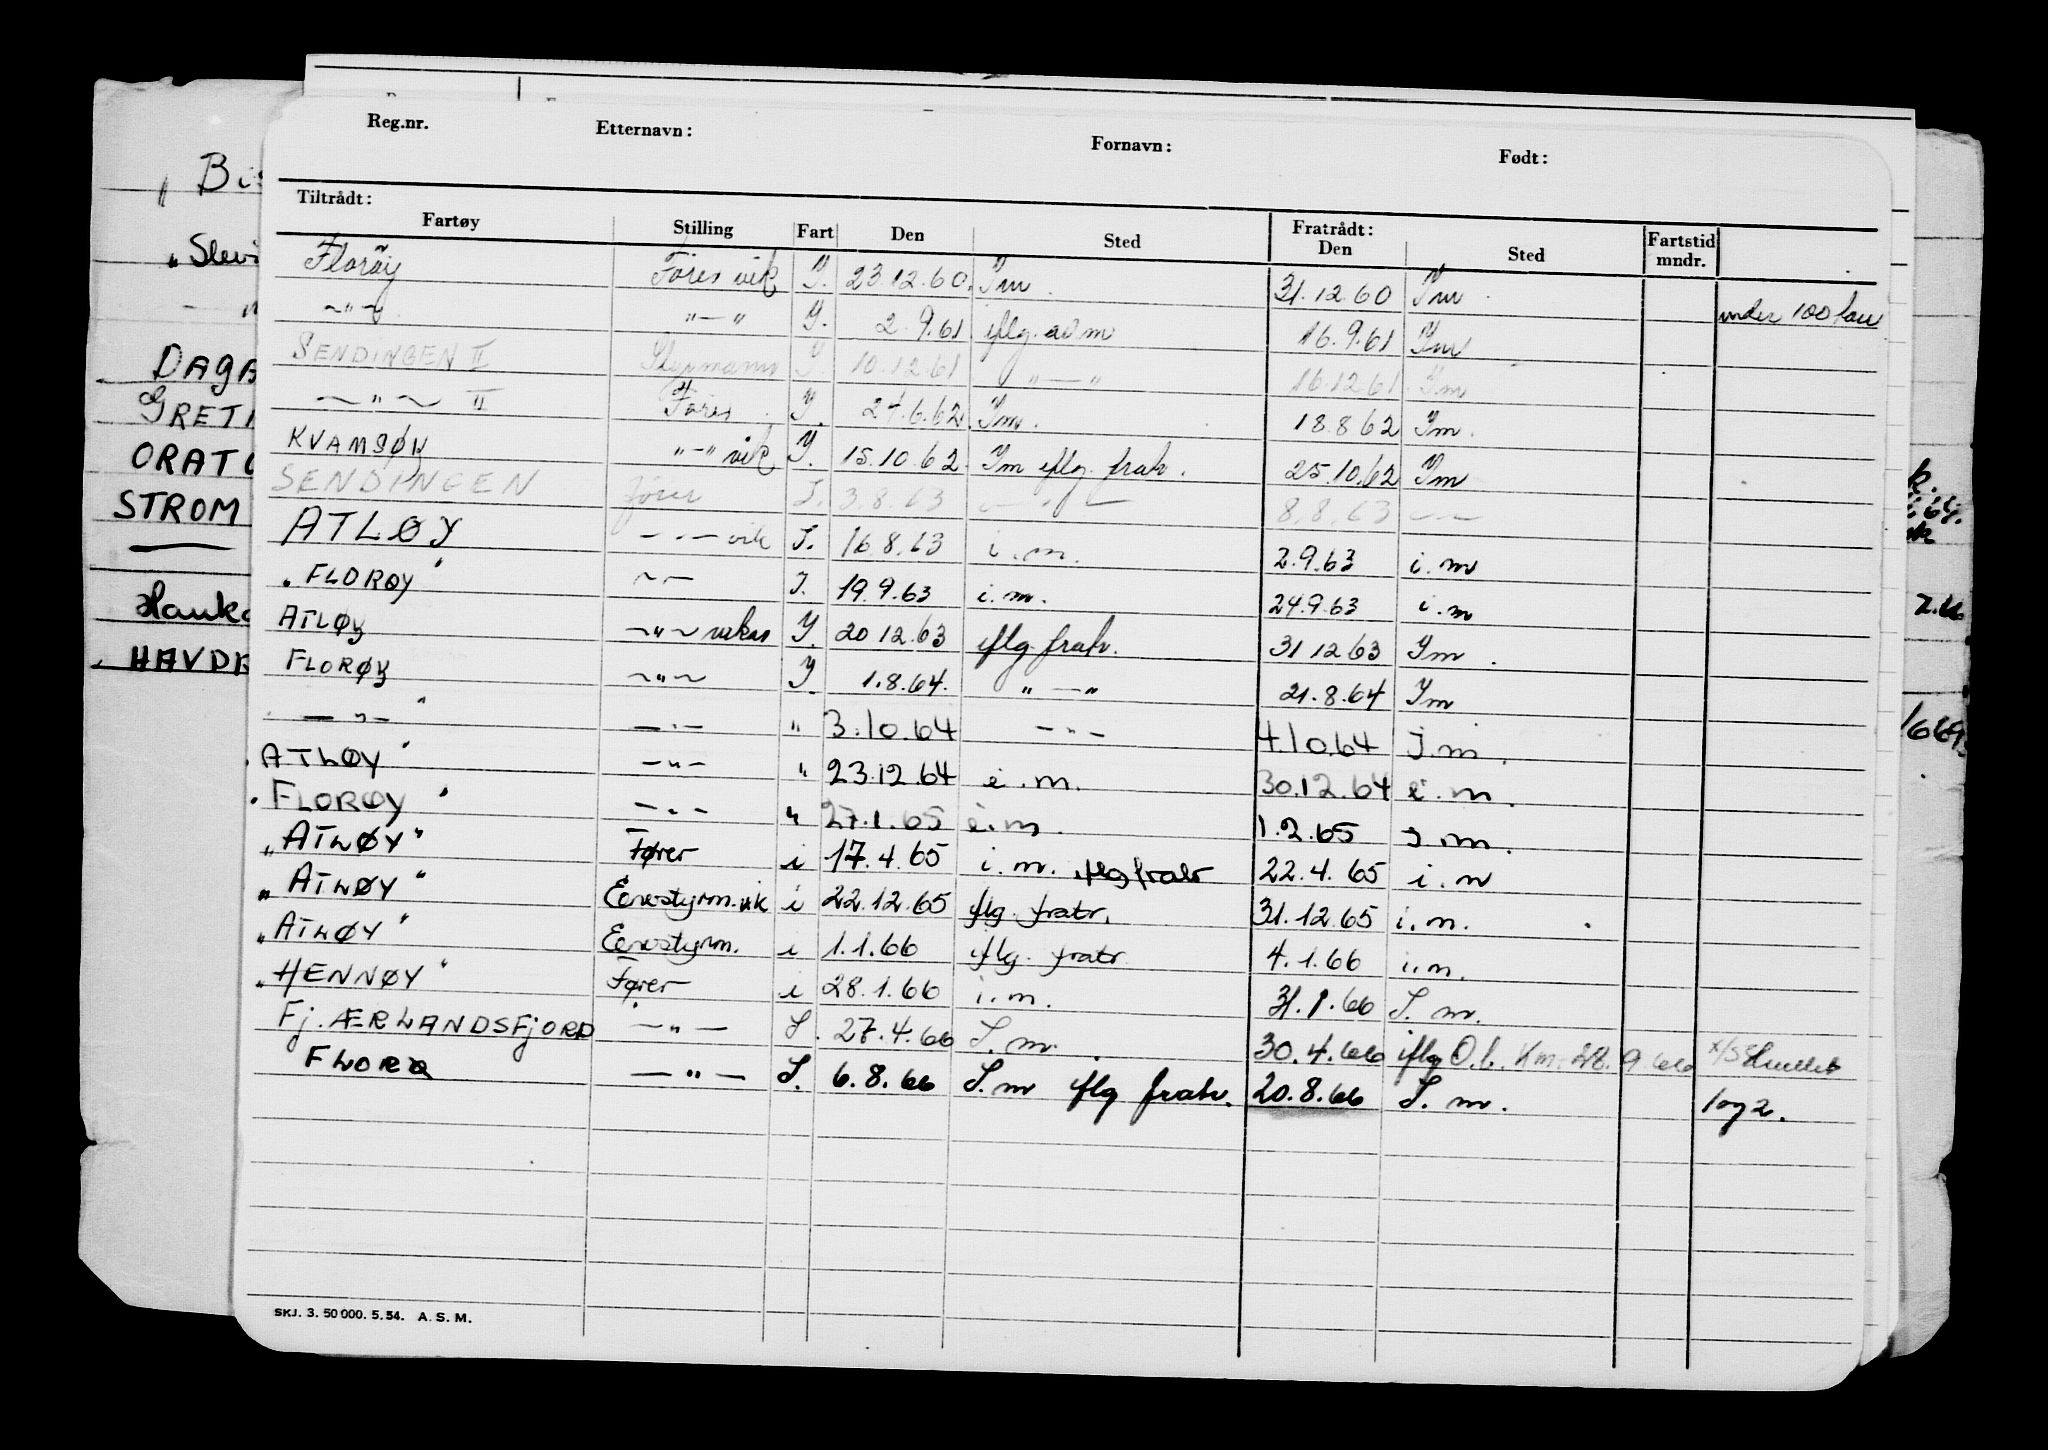 Reg.nr. Etternavn: Fornavn: Født:
Tiltrådt: Fratrådt:
Fartøy Stilling Fart Den Sted Den Sted Fartstid mndr.
Florøy Fører vik Y. 23.12.60. Ym. 31.12.60 Ym. under 100 tonn
~"~ "—" Y. 2.9.61 iflg. adm 16.9.61 Ym
SENDINGEN II Styrmann Y. 10.12.61 "—" 16.12.61 Ym
~"~ II Fører. Y. 24.6.62. Ym. 18.8.62 Ym.
KVAMSØY "-" vik Y. 15.10.62. Ym iflg. fratr. 25.10.62 Ym
SENDINGEN fører I. 3.8.63 —"— 8.8.63 ——
ATLØY —"— vik I. 16.8.63 i.m. 2.9.63 i.m
"FLORØY" ~— I. 19.9.63 i.m. 24.9.63 i.m
ATLØY ~"~ vikar Y. 20.12.63 iflg. fratr. 31.12.63 Ym.
FLORØY ~"~ Y. 1.8.64. "—" 21.8.64 Ym
—"— " —"— " 3.10.64 —"— 4.10.64 I.m.
"ATLØY" —"— " 23.12.64 i.m. 30.12.64 i.m.
"FLORØY" —"— " 27.1.65 i.m. 1.2.65 I.m.
"ATLØY" Fører i 17.4.65 i.m. iflg fratr 22.4.65 i.m
"ATLØY" Enestyrm. vik i 22.12.65 iflg. fratr. 31.12.65 i.m.
"ATLØY" Enestyrm. i 1.1.66 iflg. fratr. 4.1.66 i.m.
"HENNØY" Fører i 28.1.66 i.m. 31.1.66 I.m.
Fj. ÆRLANDSFJORD —"— I. 27.4.66 I.m. 30.4.66 iflg O.b. Km. 28.9.66
FLORA —"— I. 6.8.66 I.m iflg fratr. 20.8.66 I.m. 1 og 2.
SKJ. 3. 50 000. 5. 54. A. S. M.
DAGA
ORATO
STROM
Hauk
HAVD